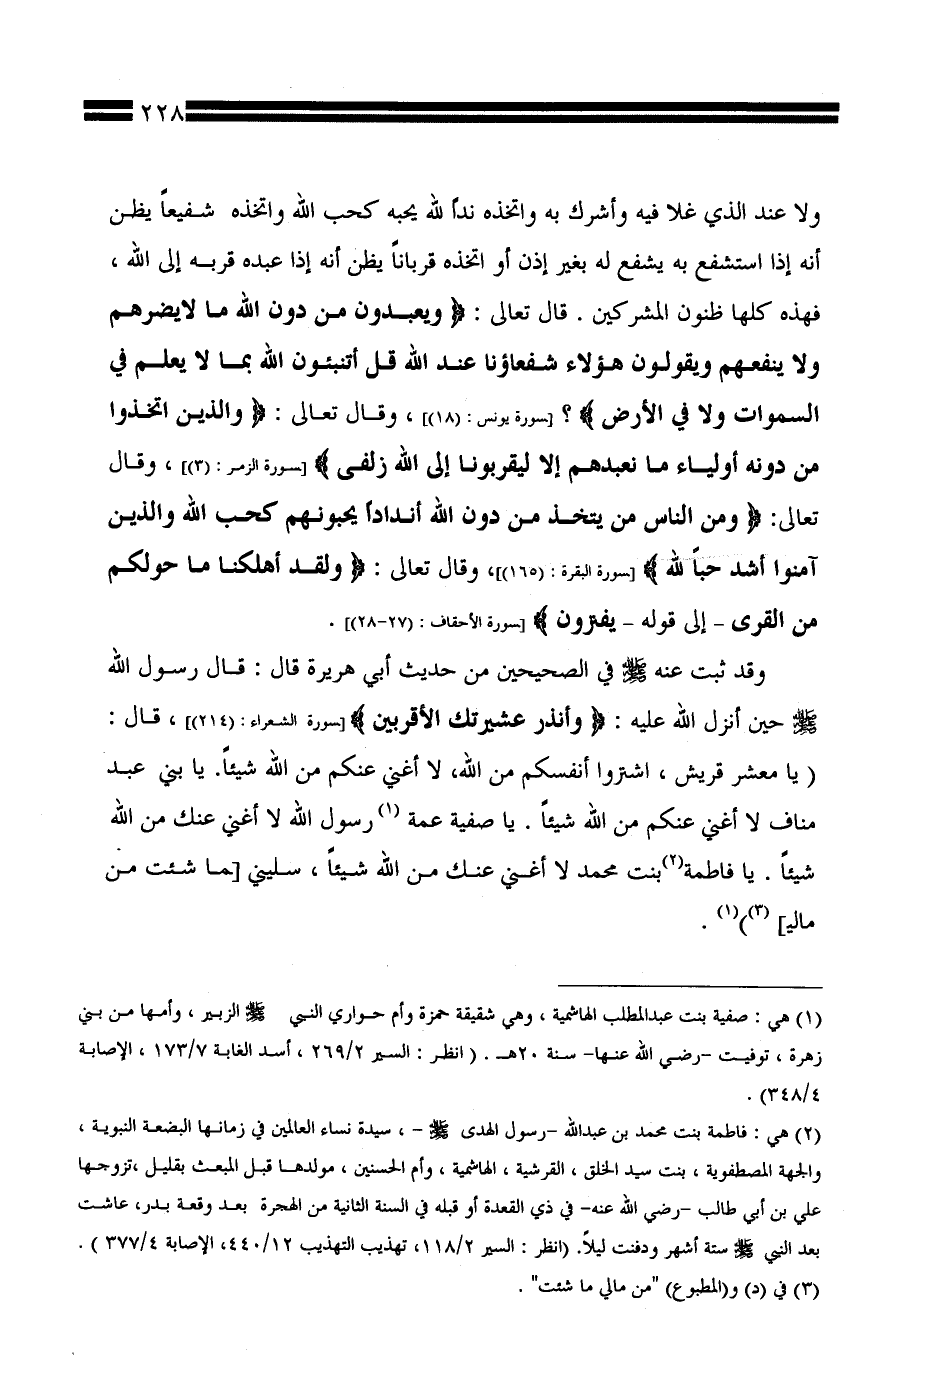 ٢٢٨
ولا عند الذي غلا فيه وأشرك به واتخذه نداً لله يحبه كحب الله واتخذه شفيعاً يظن
أنه إذا استشفع به يشفع له بغير إذن أو اتخذه قرباناً يظن أنه إذا عبده قربه إلى الله ،
فهذه كلها ظنون المشركين . قال تعالى : ﴿ ويعبدون من دون الله ما لايضرهم
ولا ينفعهم ويقولون هؤلاء شفعاؤنا عند الله قل أتنبئون الله بما لا يعلم في
السموات ولا في الأرض ﴾ ؟ [سورة يونس : (١٨)] ، وقال تعالى : ﴿ والذين اتخذوا
من دونه أولياء ما نعبدهم إلا ليقربونا إلى الله زلفى ﴾ [سورة الزمر : (٣)] ، وقال
تعالى: ﴿ ومن الناس من يتخذ من دون الله أنداداً يحبونهم كحب الله والذين
آمنوا أشد حباً لله ﴾ [سورة البقرة : (١٦٥)]، وقال تعالى : ﴿ ولقد أهلكنا ما حولكم
من القرى – إلى قوله – يفترون ﴾ [سورة الأحقاف : (٢٧-٢٨)] .
وقد ثبت عنه ﷺ في الصحيحين من حديث أبي هريرة قال : قال رسول الله
ﷺ حين أنزل الله عليه : ﴿ وأنذر عشيرتك الأقربين ﴾ [سورة الشعراء : (٢١٤)] ، قال :
( يا معشر قريش ، اشتروا أنفسكم من الله، لا أغني عنكم من الله شيئاً. يا بني عبد
مناف لا أغني عنكم من الله شيئاً . يا صفية عمة (١) رسول الله لا أغني عنك من الله
شيئاً . يا فاطمة(٢) بنت محمد لا أغني عنك من الله شيئاً ، سليني [ما شئت من
مالي] (٣))(١) .
(١) هي : صفية بنت عبدالمطلب الهاشمية ، وهي شقيقة حمزة وأم حواري النبي ﷺ الزبير ، وأمها من بني
زهرة ، توفيت -رضي الله عنها- سنة ٢٠هـ . ( انظر : السير ٢٦٩/٢ ، أسد الغابة ١٧٣/٧ ، الإصابة
٣٤٨/٤) .
(٢) هي : فاطمة بنت محمد بن عبدالله -رسول الهدى ﷺ - ، سيدة نساء العالمين في زمانها البضعة النبوية ،
والجهة المصطفوية ، بنت سيد الخلق ، القرشية ، الهاشمية ، وأم الحسنين ، مولدها قبل المبعث بقليل ،تزوجها
علي بن أبي طالب -رضي الله عنه- في ذي القعدة أو قبله في السنة الثانية من الهجرة بعد وقعة بدر، عاشت
بعد النبي ﷺ ستة أشهر ودفنت ليلاً. (انظر : السير ١١٨/٢، تهذيب التهذيب ٤٤٠/١٢، الإصابة ٣٧٧/٤ ) .
(٣) في (د) و(المطبوع) "من مالي ما شئت" .